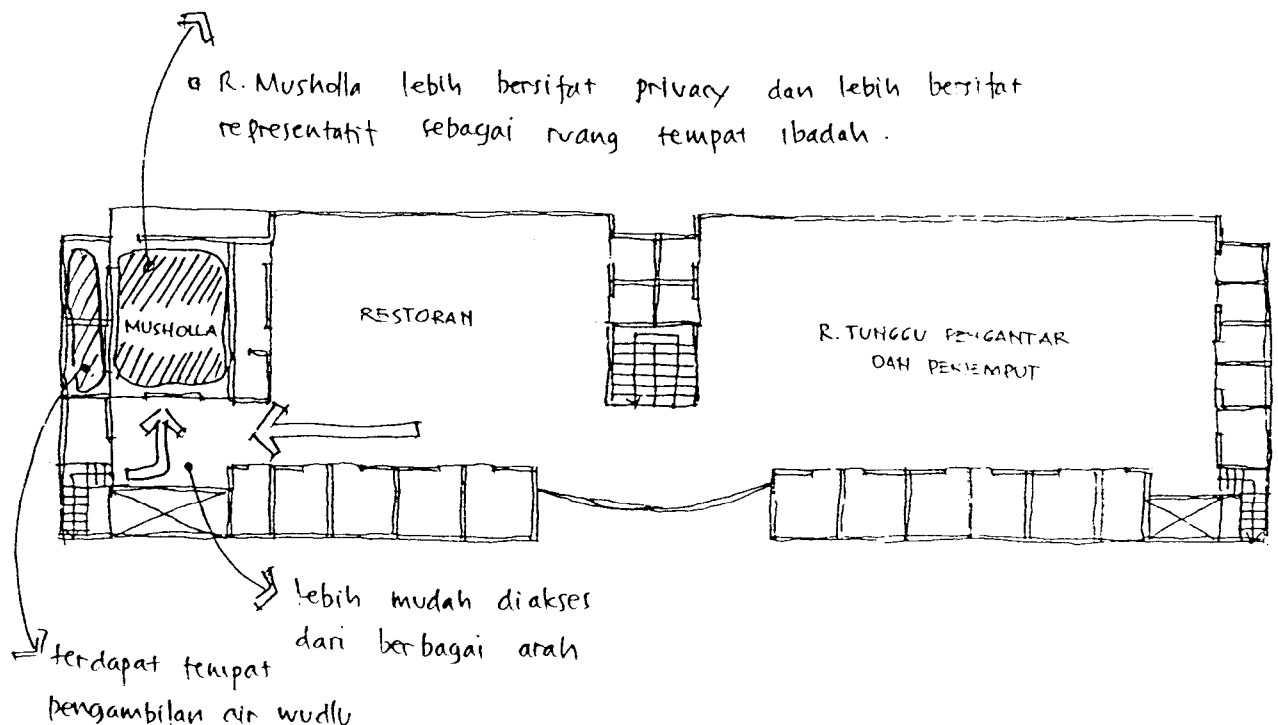 R. Musholla lebih bersifat privacy dan lebih bersifat
representatif sebagai ruang tempat ibadah.
MUSHOLLA
RESTORAN
R. TUNGGU PENGANTAR
DAN PENJEMPUT
lebih mudah diakses
dari berbagai arah
terdapat tempat
pengambilan air wudlu